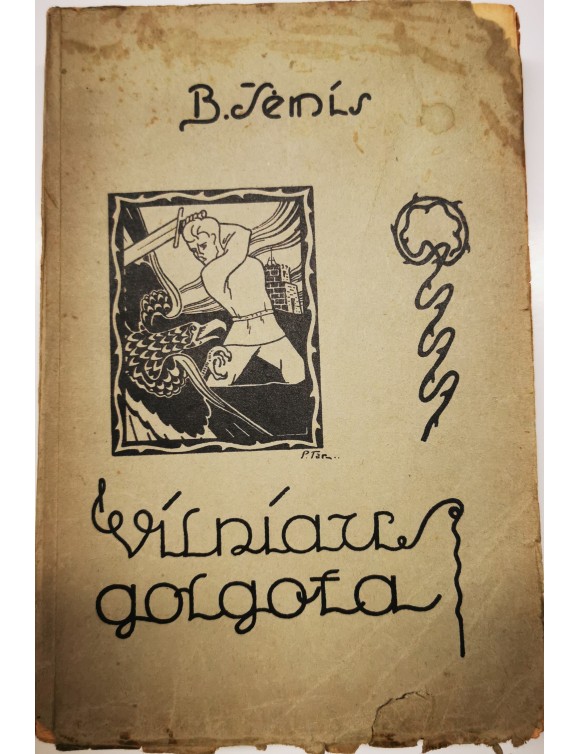 B. Šėmis
P. Tar..
Vilniaus
golgota